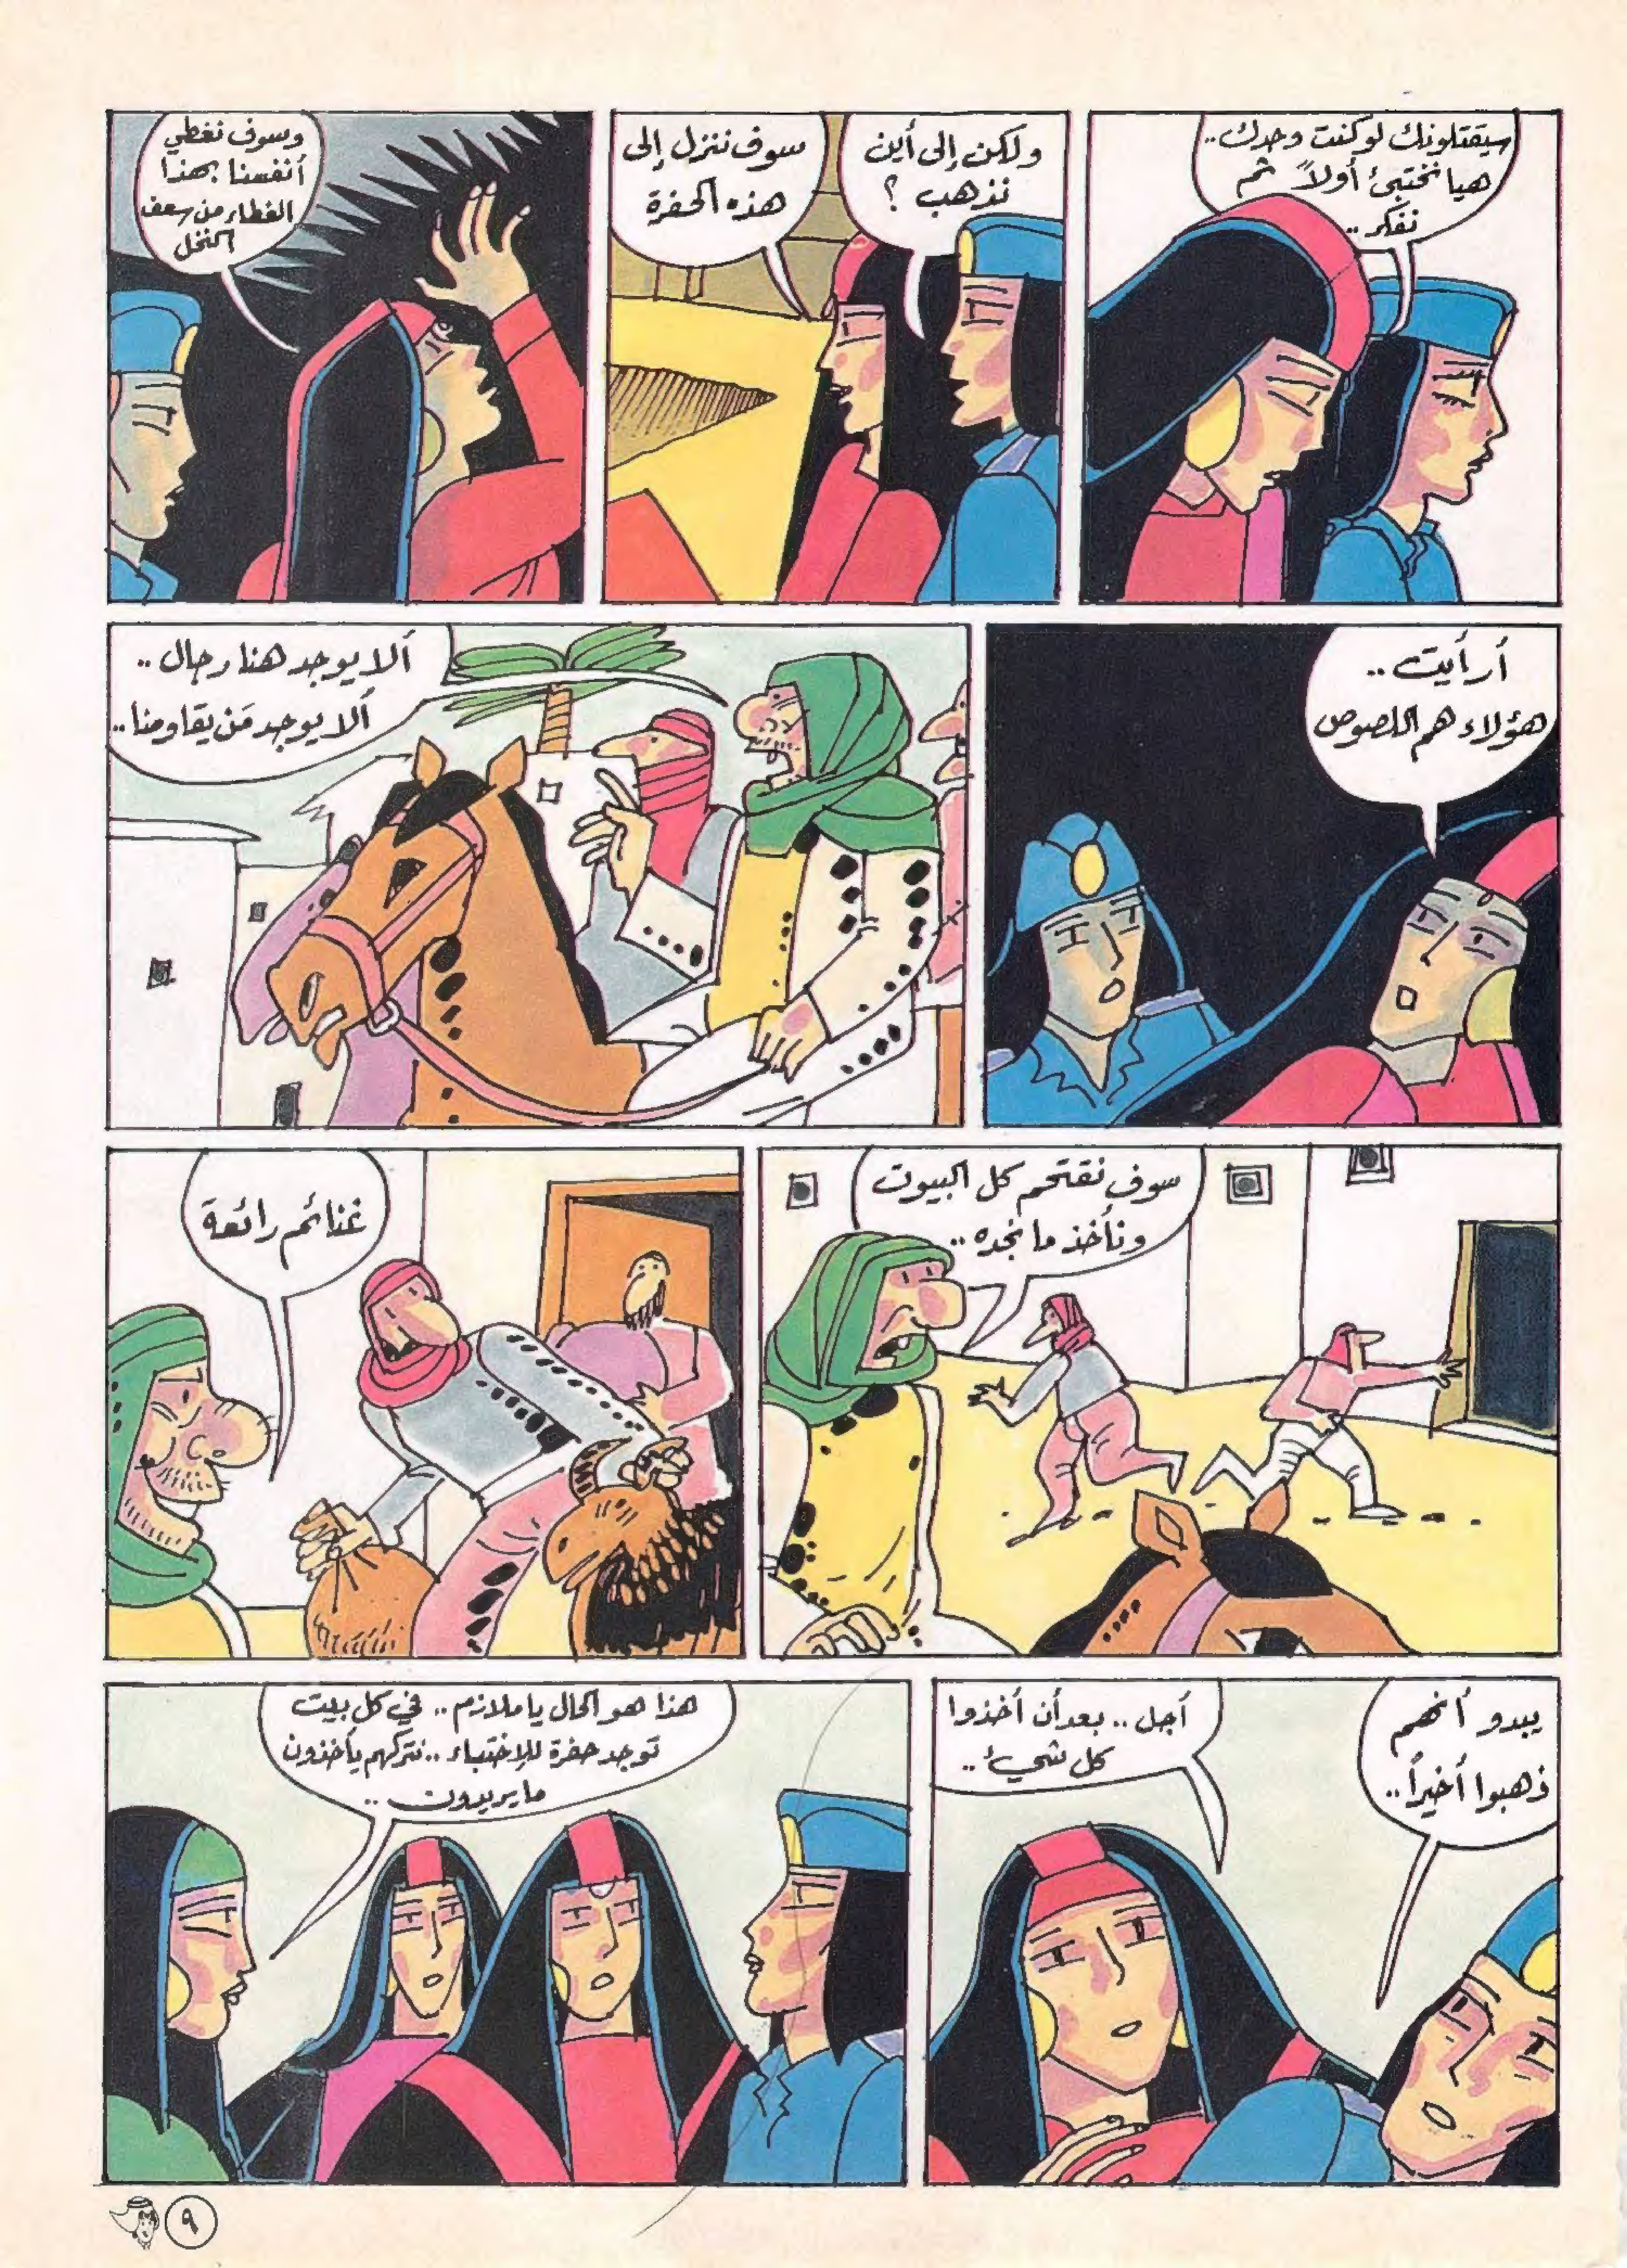 سيقتلونك لو كنت وحدك..
هيا نختبئ أولاً ثم
نفكر..
ولكن إلى أين
نذهب؟
سوف ننزل إلى
هذه الحفرة
وسوف نغطي
أنفسنا بهذا
الغطاء من سعف
النخل
أرأيت..
هؤلاء هم اللصوص
ألا يوجد هنا رجال..
ألا يوجد مَن يقاومنا..
سوف نقتحم كل البيوت
ونأخذ ما نجده..
غنائم رائعة
يبدو أنهم
ذهبوا أخيراً..
أجل.. بعد أن أخذوا
كل شيء..
هذا هو الحال يا ملازم.. في كل بيت
توجد حفرة للإختباء.. نتركهم يأخذون
ما يريدون..
٩